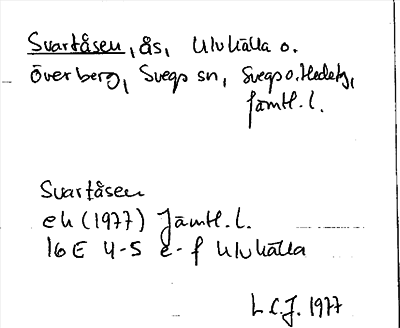 Svartåsen, ås, Ulvkälla o.
Överberg, Svegs sn, Svegs o. Hedebg,
Jämtl. l.
Svartåsen
ek (1977) Jämtl. l.
16 E 4-5 e-f Ulvkälla
L C.J. 1977